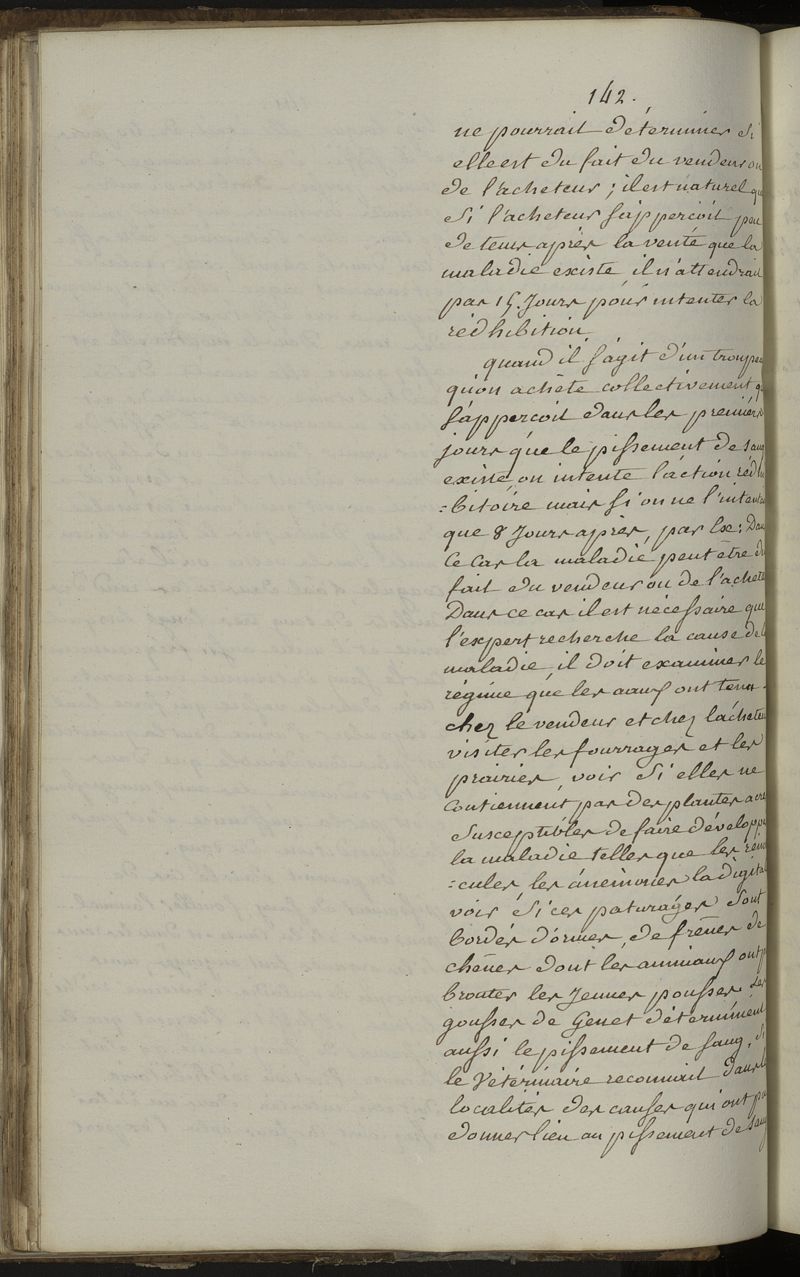 142.
ne pourrait déterminer si
elle est du fait du vendeur ou
de l'acheteur ; il est naturel que
si l'acheteur s'apperçoit peu
de tems après la vente que la
maladie existe il n'attendrait
pas 15 Jours pour intenter la
rédhibition
quand il s'agit d'un troupeau
qu'on achète collectivement qu
s'apperçoit dans les premiers
jours que le pissement de sang
existe, on intente l'action rédhi
=bitoire mais si on ne l'intente
que 8 Jours après, par Ex: Dans
ce cas la maladie peut être du
fait du vendeur ou de l'achete
Dans ce cas il est nécessaire que
l'expert recherche la cause de la
maladie, il doit examiner le
régime que les aaux ont tenu
chez le vendeur et chez l'acheteur
visiter les fourrages et les
prairies, voir si elles ne
contiennent pas des plantes acres
susceptibles de faire développer
la maladie telles que les renon
=cules les anémones la digital
voir si ces paturages sont
bordés d'ormes, de frênes de
chênes dont les animaux ont p
brouter les Jeunes pousses. Les
gousses de Genet déterminent
aussi le pissement de sang, si
le Vétérinaire reconnait dans l
localités des causes qui ont pu
donner lieu au pissement de sang